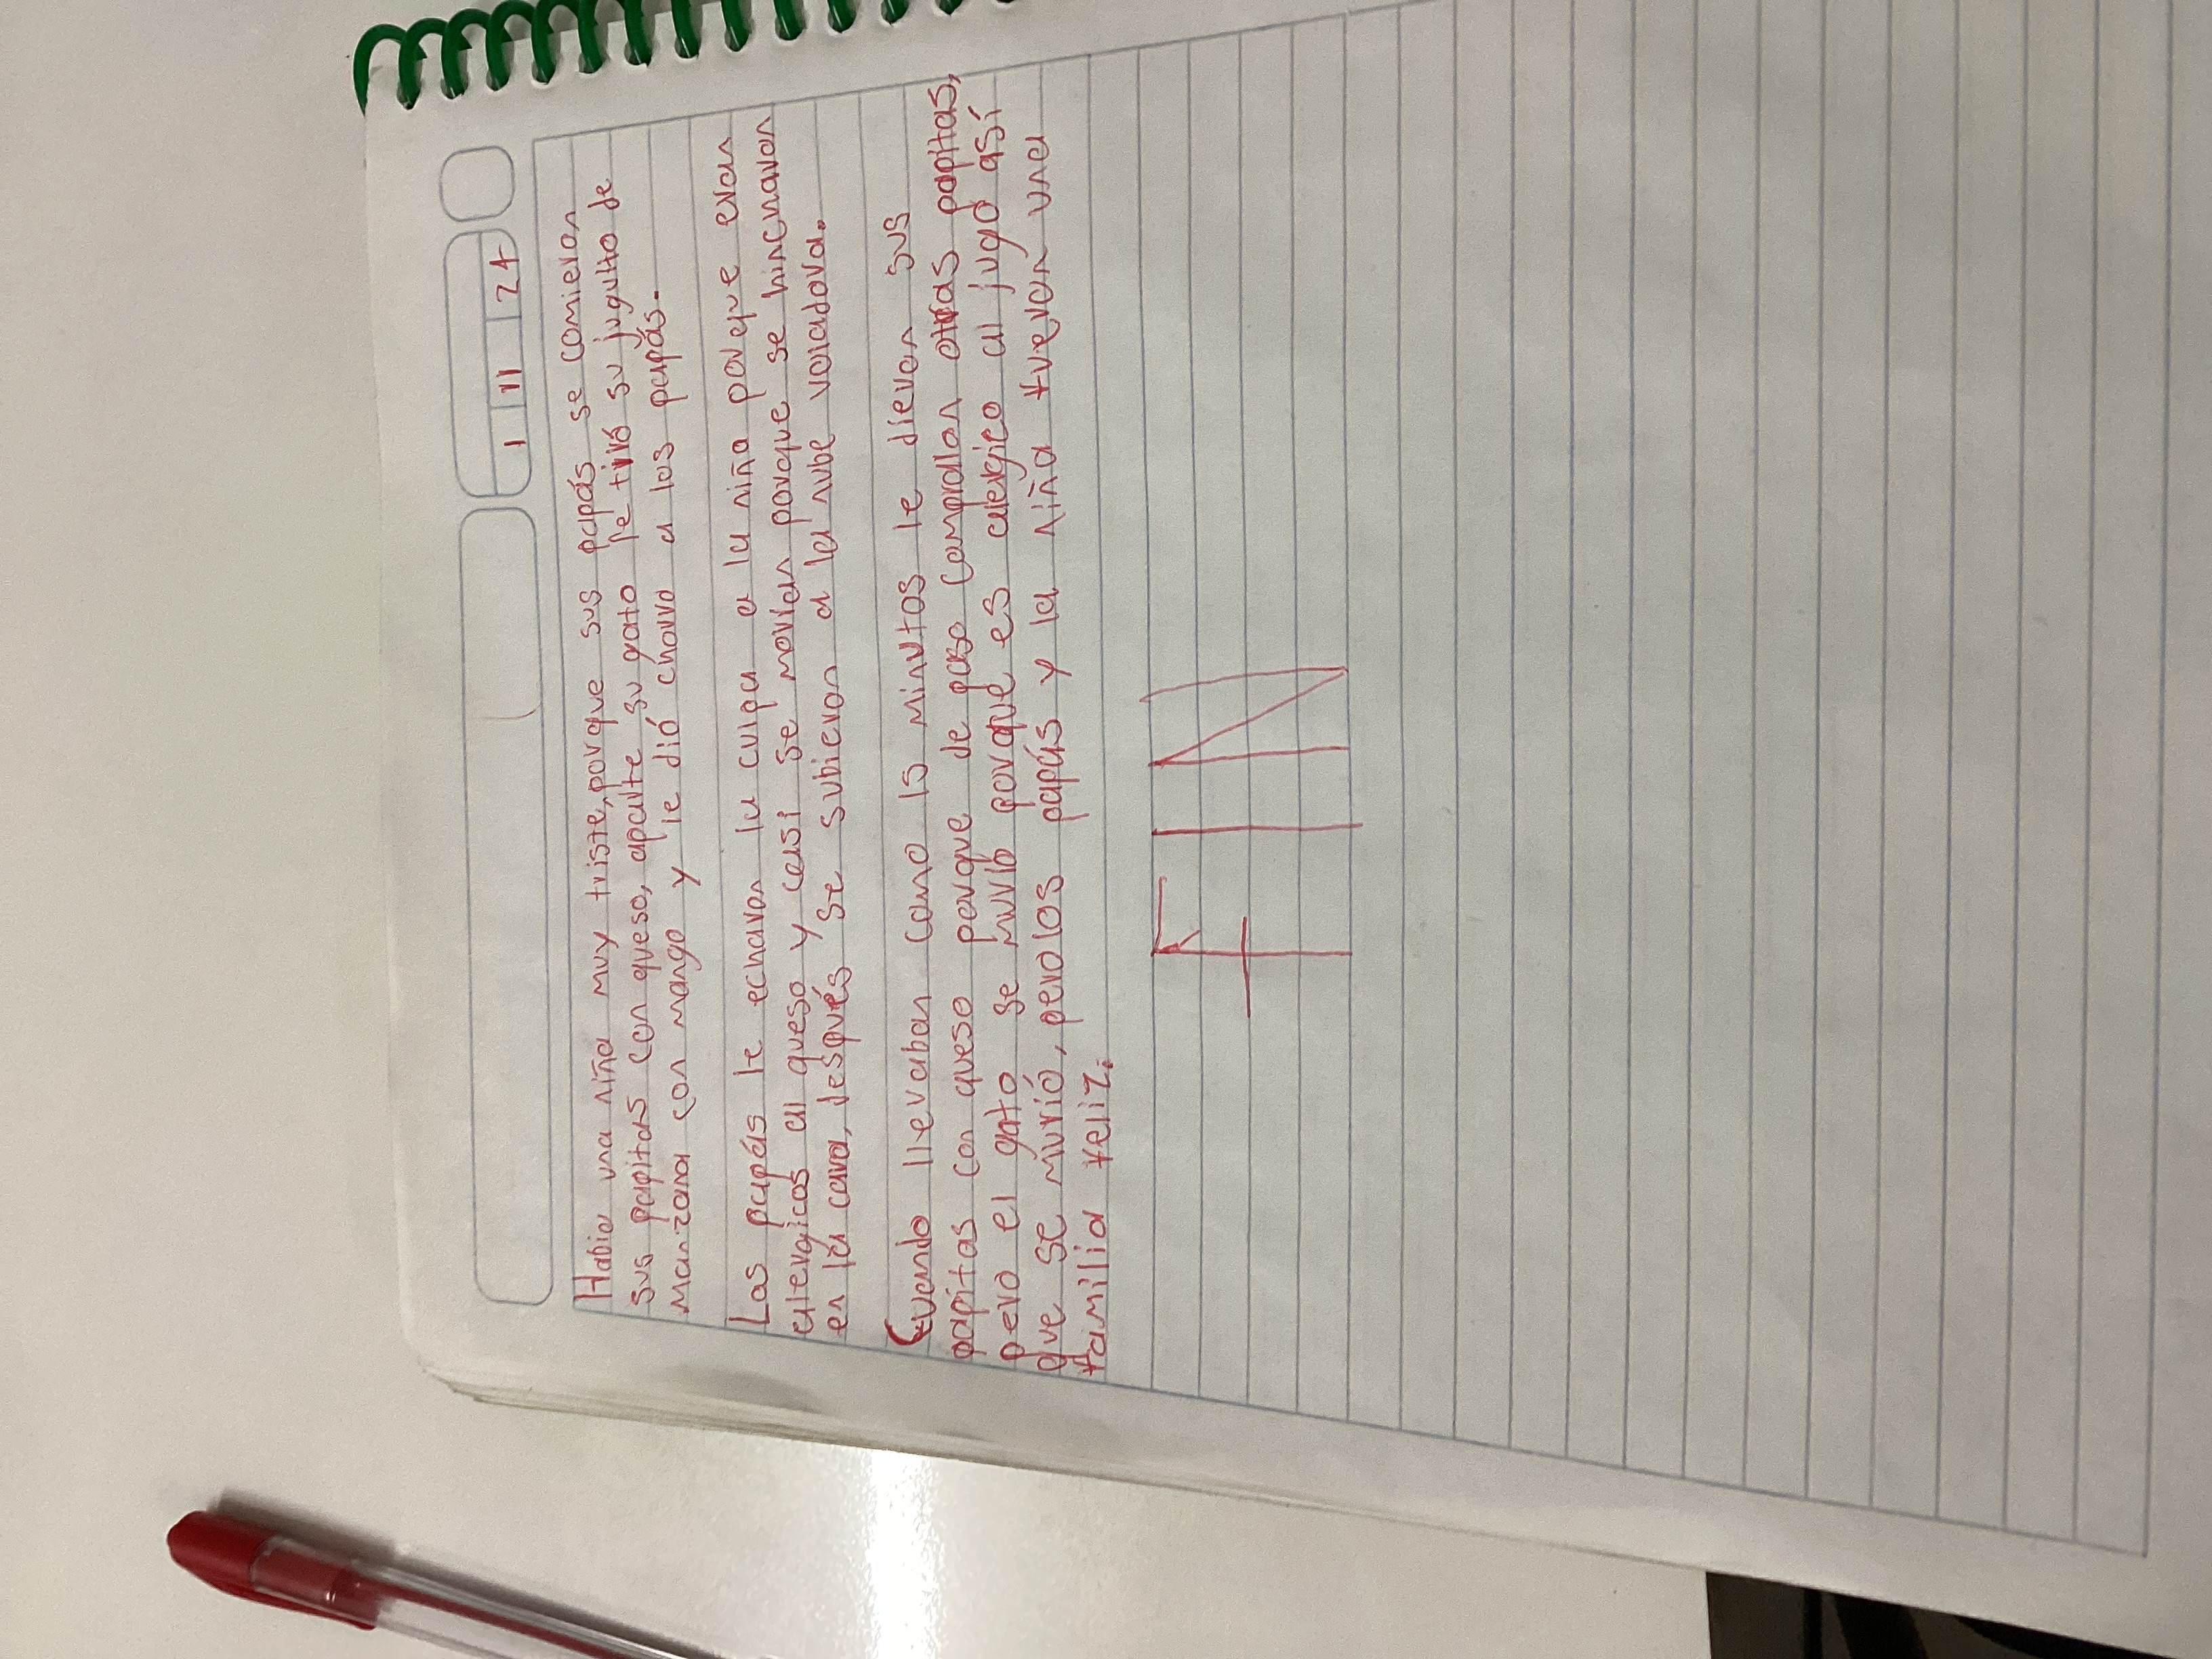 1 11 24
Había una niña muy triste, porque sus papás se comieron
sus papitas con queso, aparte su gato le tiró su juguito de
manzana con mango y le dió chorro a los papás.
Los papás le echaron la culpa a la niña porque eran
alergicos al queso y casi se morían porque se hincharon
en la cara, después se subieron a la nube voladora.
Cuando llevaban como 15 minutos le dieron sus
papitas con queso porque de paso compraron otras papitas,
pero el gato se murió porque es alergico al jugo así
que se murió, pero los papás y la niña fueron una
familia feliz.
FIN